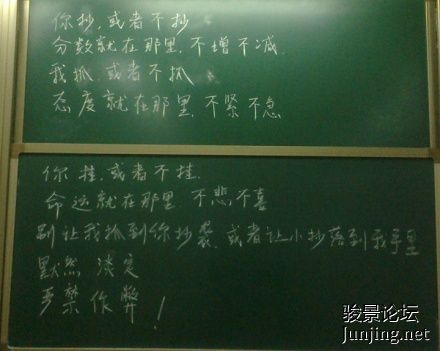 你抄,或者不抄
分数就在那里,不增不减.
我抓,或者不抓
态度就在那里,不紧不急
你挂,或者不挂.
命运就在那里 不悲不喜
别让我抓到你抄袭,或者让小抄落到我手里
默然 淡定
严禁作弊!
骏景论坛
Junjing.net